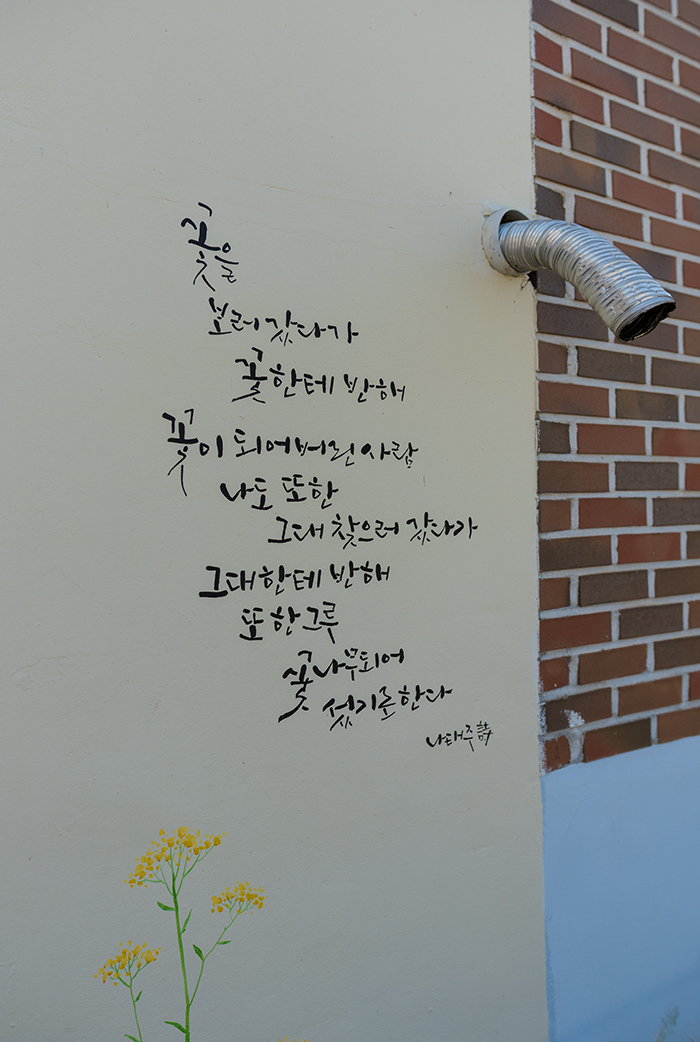 꽃을
보러 갔다가
꽃한테 반해
꽃이 되어버린 사람
나도 또한
그대 찾으러 갔다가
그대한테 반해
또 한그루
꽃나무되어
섰기로한다
나태주 詩